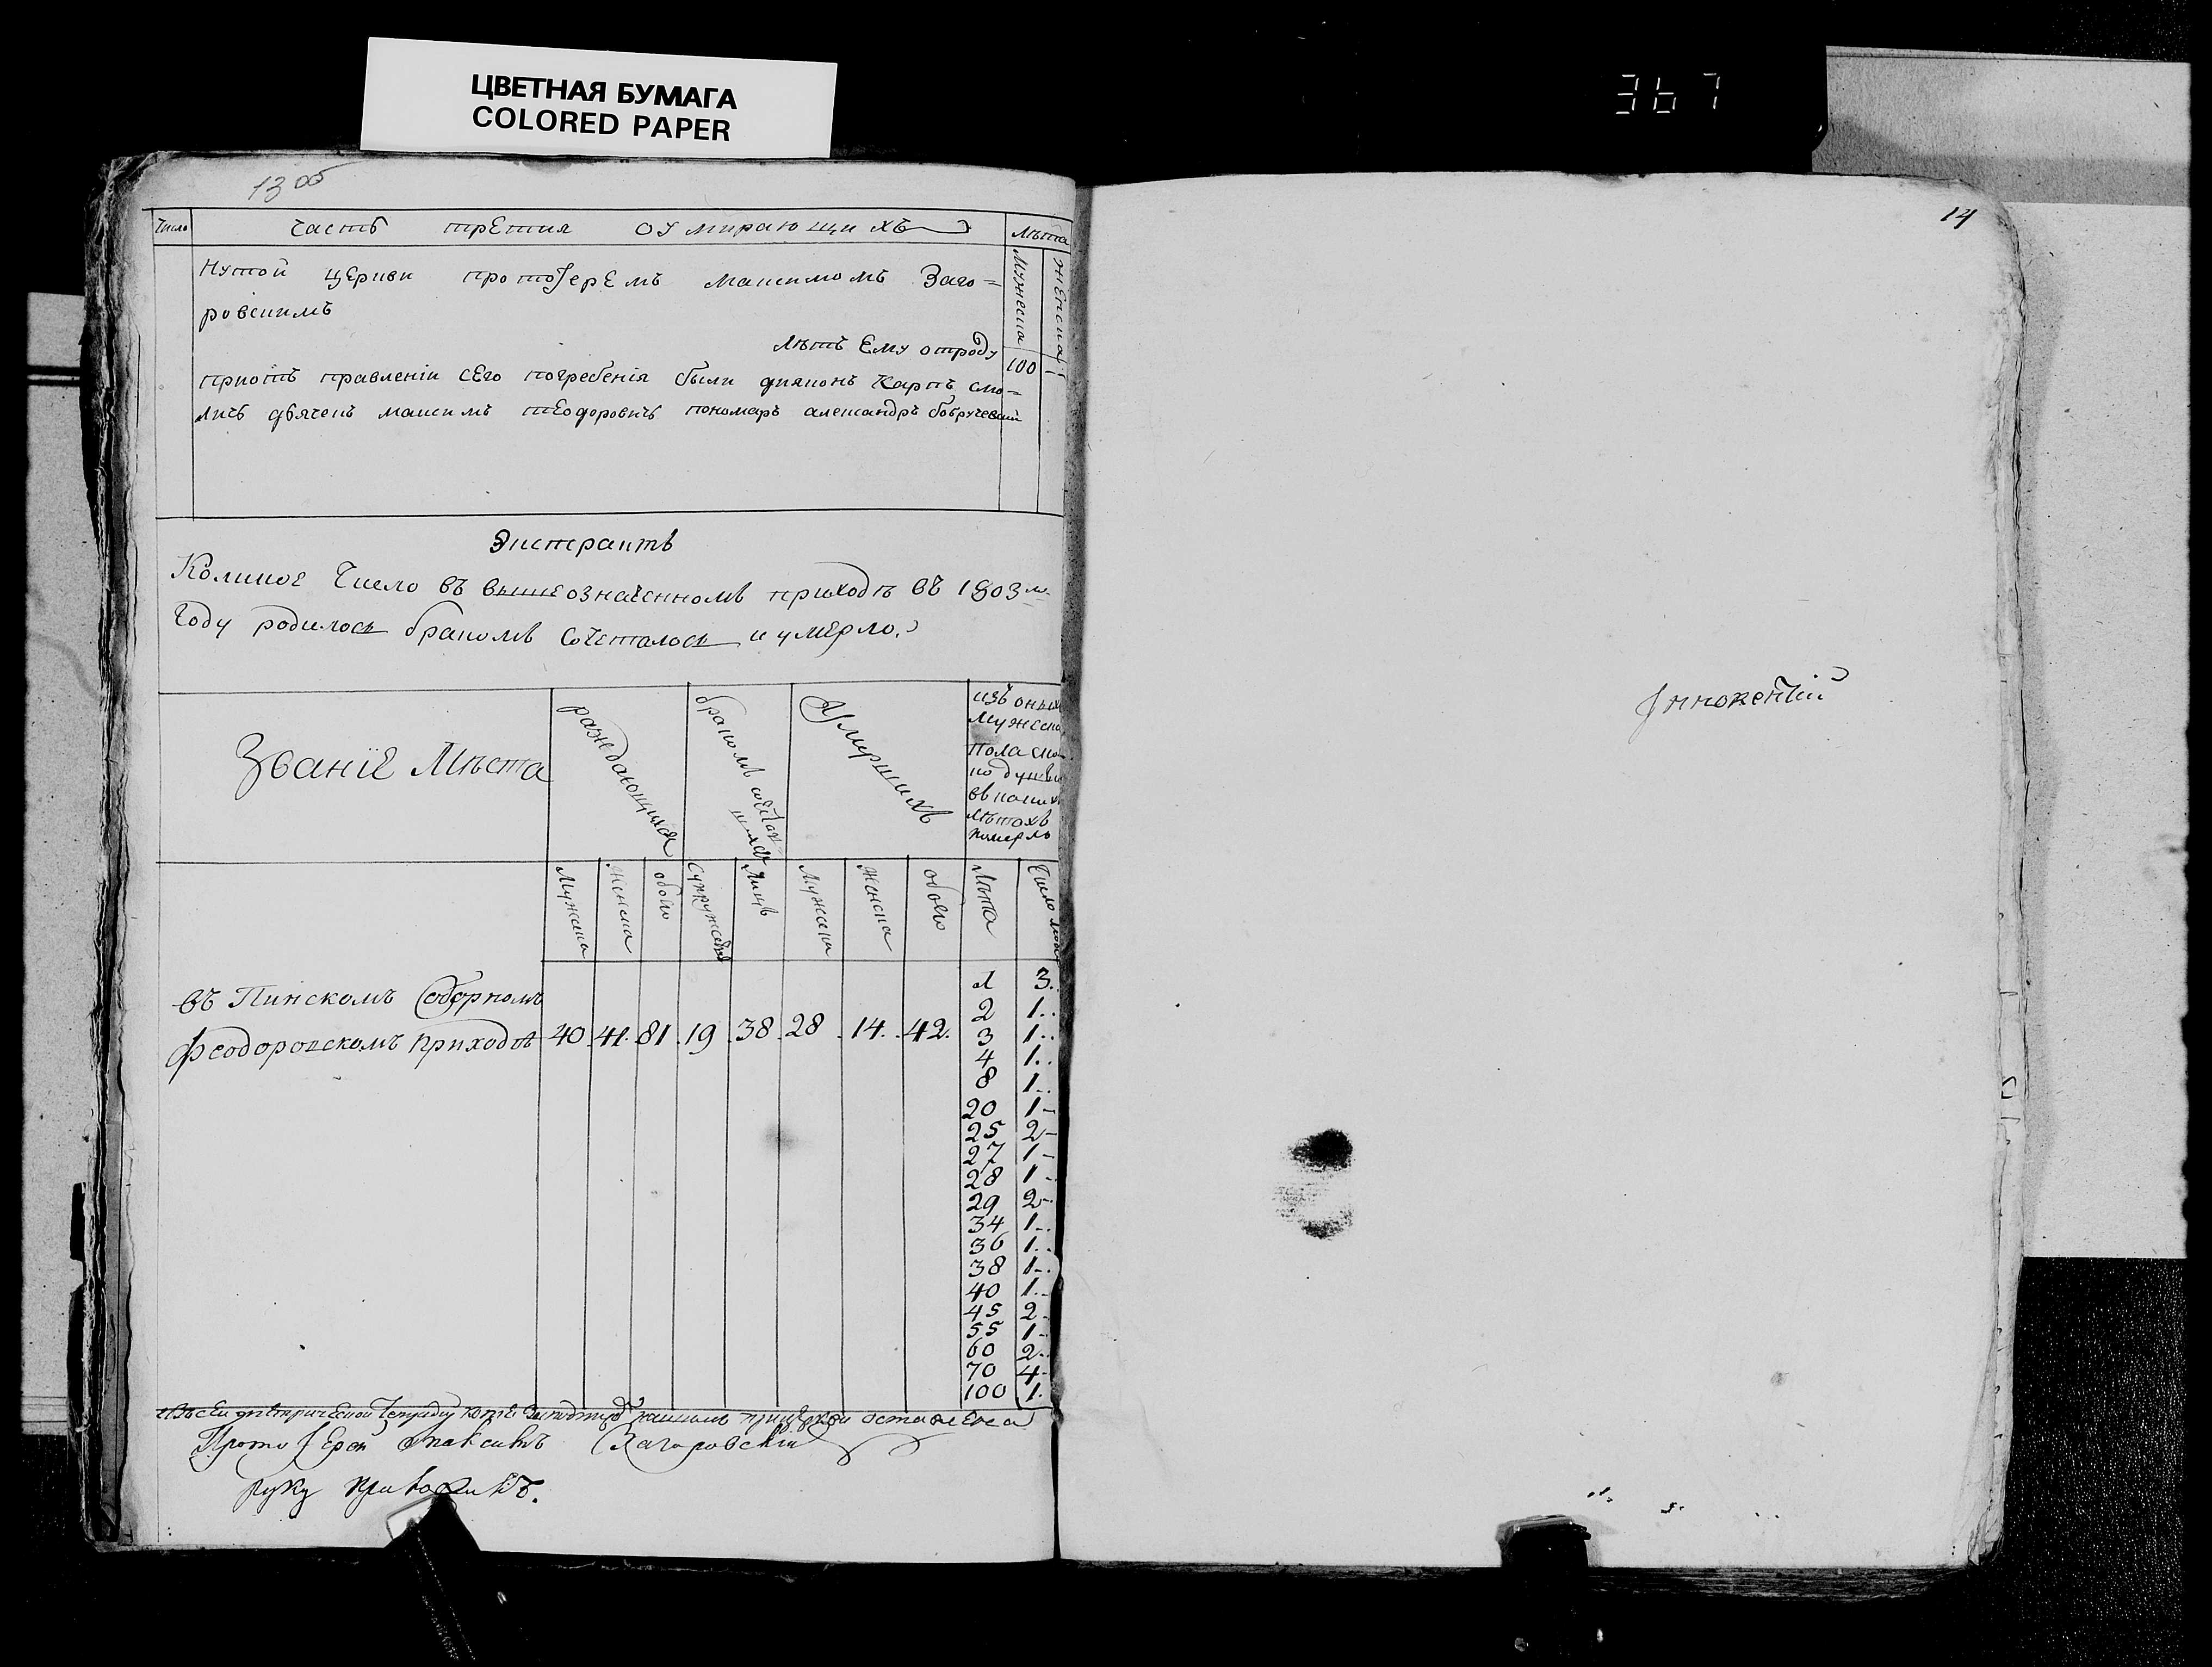 ЦВЕТНАЯ БУМАГА
COLORED PAPER
367
13 об
Число Часть третия оумирающихъ Лѣта
Мужеска Женска
тутой церкви протоІерEмъ Макcимомъ Заго=
ровскимъ
лѣтъ Ему отроду 100 -
приотъ правленіи сEго погребенія были диякон Карпъ смо=
личъ дьячекъ Максимъ теодоровичъ пономарь александръ бобручевкий
Экстрактъ
Коликое Число въ вышеозначенномъ приходѣ въ 1803 м
Году родилось бракомъ сочеталось и умерло.
Званіе Мѣста
раждающихся
бракомъ сочетав-
шихся
Умершихъ
изъ оных
Мужеска
Пола
по
въ каких
лѣтахъ
померло
Мужеска Женска обоего Супружествъ Лицъ Мужеска Женска обоего Лѣта Число
въ Пинскомъ Соборномъ
Феодоровскомъ приходѣ 40 41. 81 19 38 28 14. 42.
1 3.
2 1..
3 1..
4 1..
8 1..
20 1-
25 2-
27 1-
28 1-
29 2-
34 1-.
36 1..
38 1-.
40 1..
45 2-
55 1-
60 2..
70 4-
100 1.
оставлена
ПротоІерей Максимъ Загоровскій
руку приложилъ.
14
Іннокентий